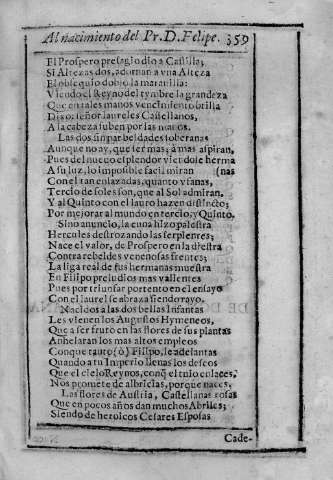 Al nacimiento del Pr. D. Felipe. 359
El Prospero presagio dio a Castilla;
Si Altezas dos, adornan a vna Alteza
El obsequio dobló la marauilla:
Viendo el Reyno del tymbre la grandeza
Que en tales manos vencimiento brilla
Dixo: señor laureles Castellanos,
A la cabeza suben por las manos.
Las dos sin par beldades soberanas
Aunque no ay, que ser mas; à mas aspiran,
Pues del nueuo esplendor viendose hermanas
A su luz, lo impossible facil miran
Con el tan enlazadas, quanto vfanas,
Tercio de soles son, que al Sol admiran.
Y al Quinto con el lauro hazen distincto;
Por mejorar al mundo en tercio, y Quinto.
Si no anuncio, la cuna hizo palestra
Hercules destrozando las serpientes;
Nace el valor, de Prospero en la diestra
Contra rebeldes venenosas frentes;
La liga real de sus hermanas muestra
En Filipo preludios mas valientes
Pues por triunfar portento en el ensayo
Con el laurel se abraza siendo rayo.
Nacidos a las dos bellas Infantas
Les vienen los Augustos Hymeneos,
Que a ser fruto en las flores de sus plantas
Anhelaran los mas altos empleos
Conque tanto (ò) Filipo, le adelantas
Quando a tu Imperio llenas los deseos
Que el cielo Reynos, conq̃ el tuio enlaces,
Nos promete de albricias, porque naces,
Las flores de Austria, Castellanas rosas
Que en pocos años dan muchos Abriles;
Siendo de heroicos Cesares Esposas
Cade-